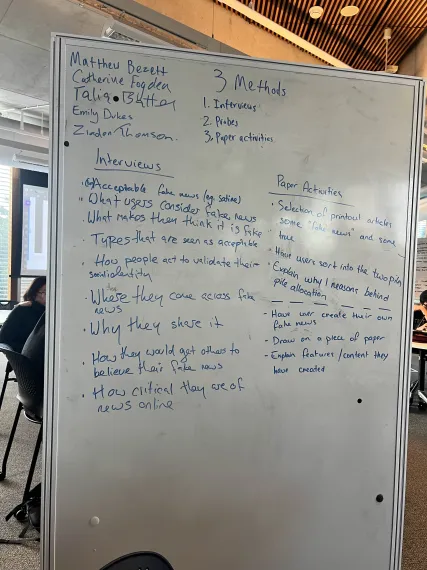 Matthew Becett
Catherine Fogden
Talia Button
Emily Dukes
Zindon Thomson.
3 Methods
1. Interviews
2. Probes
3. Paper activities
Interviews
• Acceptable fake news (eg. satire)
• What users consider fake news
• What makes them think it is fake
• Types that are seen as acceptable
• How people act to validate their
social identity
• Where they come across fake
news
• Why they share it
• How they would get others to
believe their fake news
• How critical they are of
news online
Paper Activities
• Selection of printout articles
some "fake news" and some
true
• Have users sort into the two piles
• Explain why / reasons behind
pile allocation
- Have user create their own
fake news
- Draw on a piece of paper
- Explain features/content they
have created